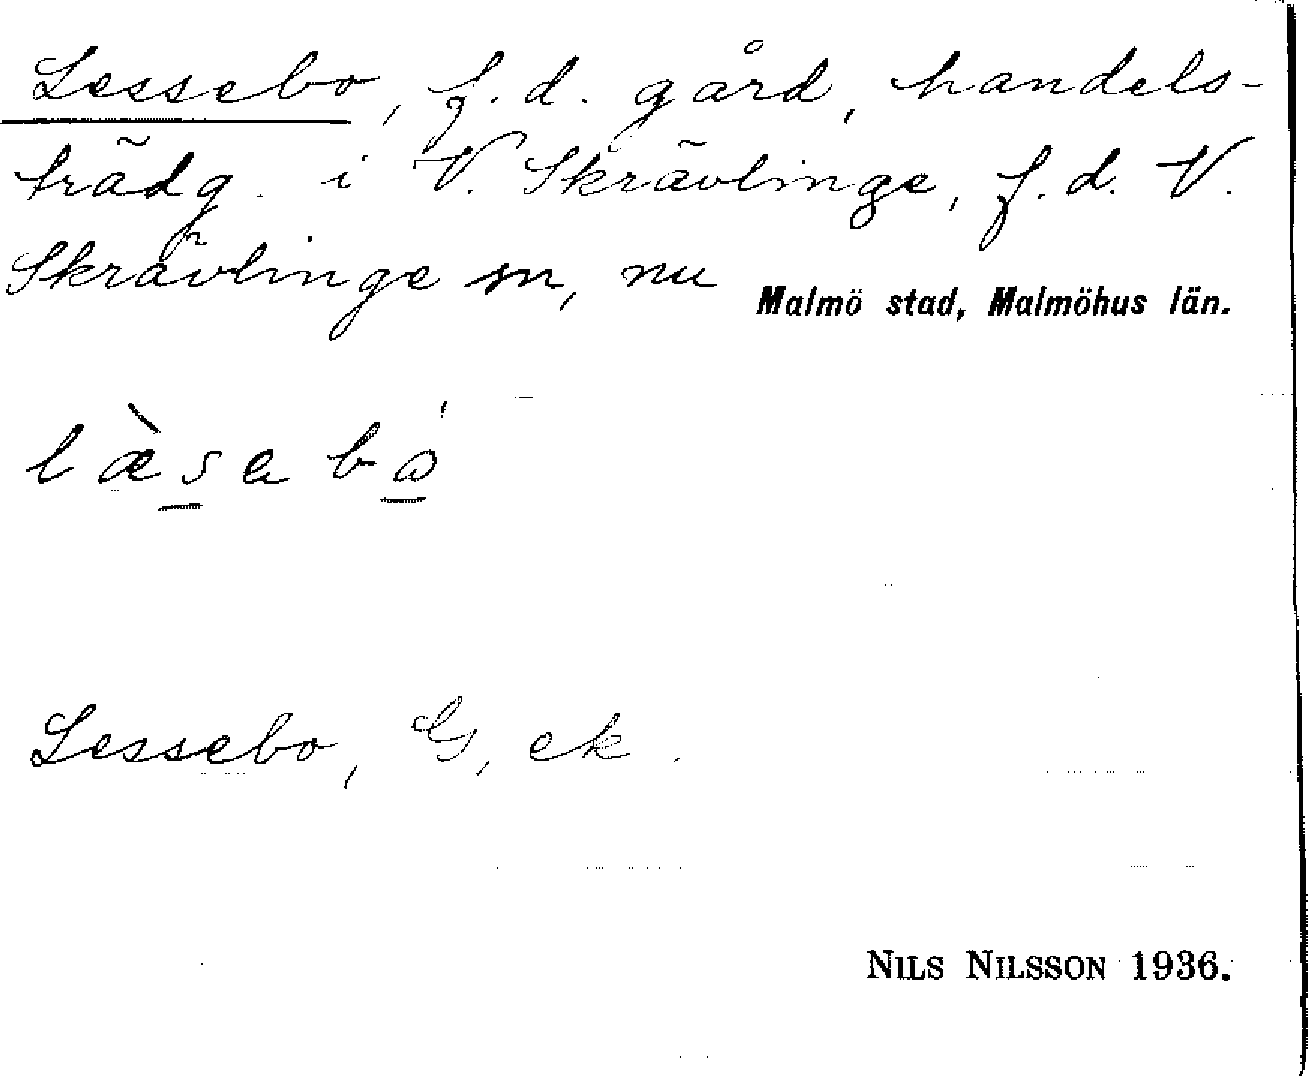 Lessebo, f.d. gård, handels-
trädg. i V. Skrävlinge, f.d. V.
Skrävlinge sn, nu Malmö stad, Malmöhus län.
læ̀sabó
Lessebo, G, ek.
NILS NILSSON 1936.